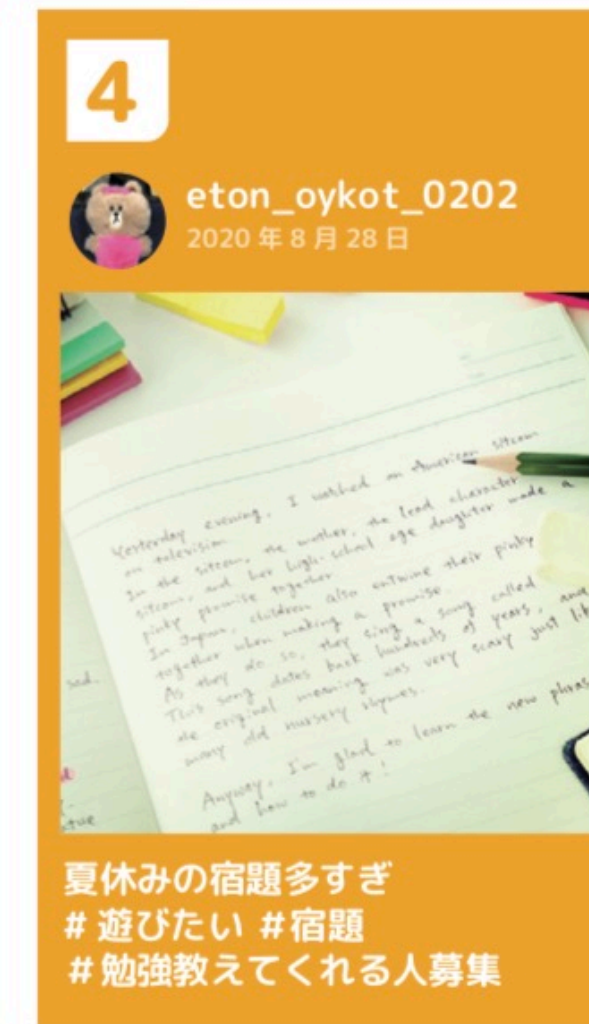 4
eton_oykot_0202
2020年8月28日
Yesterday evening, I watched an American sitcom
on television.
In the sitcom, the mother, the lead character
sitcom, and her high-school age daughter made a
pinky promise together.
In Japan, children also entwine their pinky
together when making a promise.
As they do so, they sing a song called
This song dates back hundreds of years, and
the original meaning was very scary just li
many old nursery rhymes.
Anyway, I'm glad to learn the new phras
and how to do it!
sed.
夏休みの宿題多すぎ
# 遊びたい #宿題
#勉強教えてくれる人募集